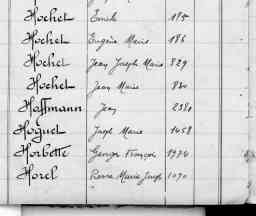 Hochet Emile 185
Hochet Eugène Marie 186
Hochet Jean Joseph Marie 829
Hochet Jean Marie 830
Hoffmann Jean
Hoguet Joseph Marie 1458
Horbette George François
Horel Pierre Marie Joseph 1070